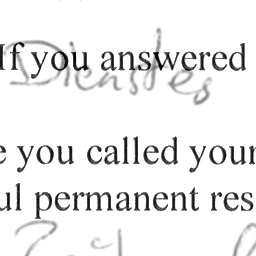 If you answered
Dicastes
e you called your
ul permanent res